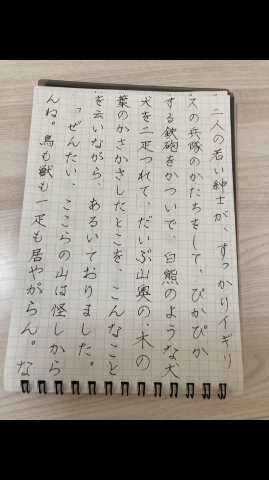 二人の若い紳士が、すっかりイギリ
スの兵隊のかたちをして、ぴかぴか
する鉄砲をかついで、白熊のような犬
犬を二疋つれて、だいぶ山奥の、木の
葉のかさかさしたとこを、こんなこと
を云いながら、あるいておりました。
「ぜんたい、ここらの山は怪しから
んね。鳥も獣も一疋も居やがらん。な